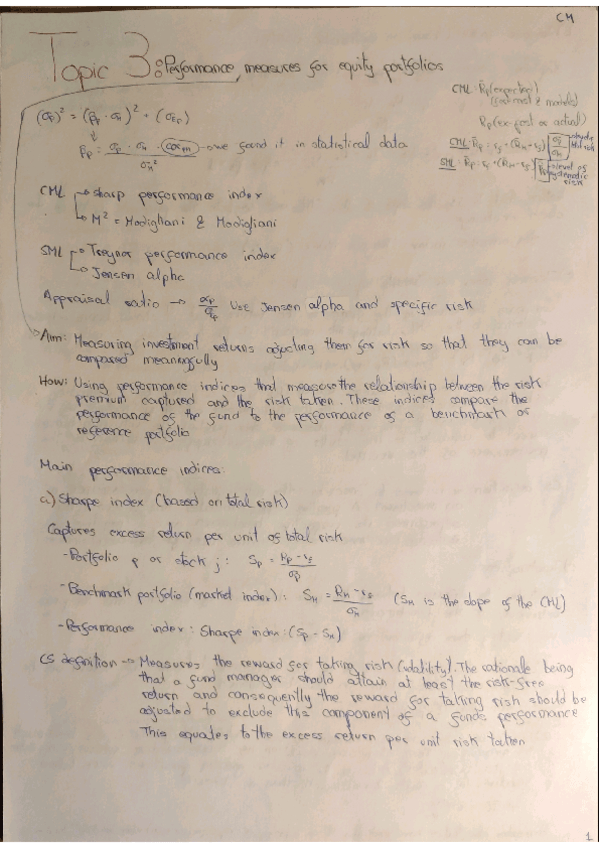 CM
Topic 3: Performance measures for equity portfolios
CML: Rp(expected)
Rp(ex-post or actual)
(σp)² = (βp · σM)² + (σεp)
βp = σp · σM · corrpM / σM² → we found it in statistical data
CML: Rp = rf + (RM - rf) σp / σM
CML → sharp performance index
→ M² = Modigliani & Modigliani
SML → Treynor performance index
→ Jensen alpha
Appraisal ratio → αp / σεp Use Jensen alpha and specific risk
Aim: Measuring investment returns adjusting them for risk so that they can be
compared meaningfully
How: Using performance indices that measure the relationship between the risk
premium captured and the risk taken. These indices compare the
performance of the fund to the performance of a benchmark or
reference portfolio
Main performance indices
a) Sharpe index (based on total risk)
Captures excess return per unit of total risk
- Portfolio p or stock j: Sp = Rp - rf / σp
- Benchmark portfolio (market index): SM = RM - rf / σM (SM is the slope of the CML)
- Performance index: Sharpe index: (Sp - SM)
CS definition → Measures the reward for taking risk (volatility). The rationale being
that a fund manager should attain at least the risk-free
return and consequently the reward for taking risk should be
adjusted to exclude this component of a funds performance
This equates to the excess return per unit risk taken
1